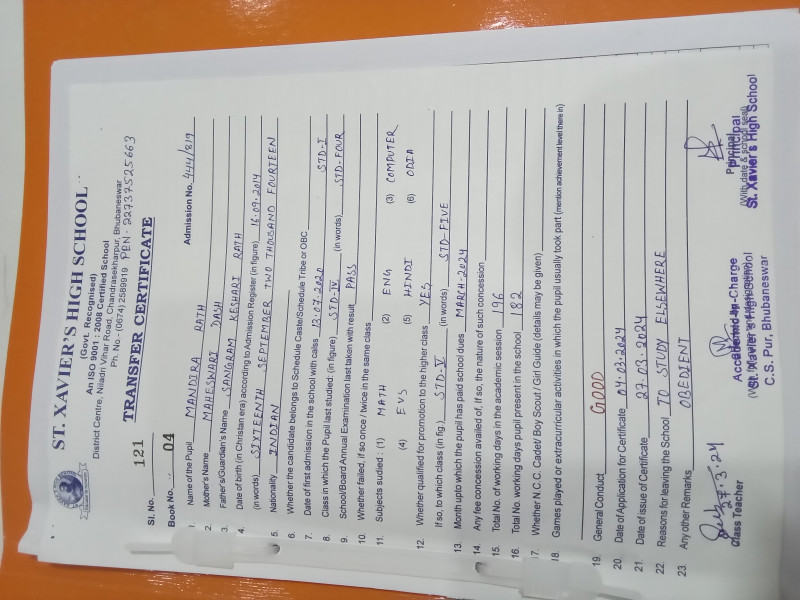 ST. XAVIER'S HIGH SCHOOL
(Govt. Recognised)
An ISO 9001 : 2008 Certified School
District Centre, Niladri Vihar Road, Chandrasekharpur, Bhubaneswar
Ph. No.- (0674) 2589919 PEN - 22737525663
TRANSFER CERTIFICATE
Sl. No. 121
Book No. 04 Admission No. 444/819
1. Name of the Pupil MANDIRA RATH
2. Mother's Name MAHESWARI DASH
3. Father's/Guardian's Name SANGRAM KESHARI RATH
4. Date of birth (in Christan era) according to Admission Register (in figure) 16.09.2014
(in words) SIXTEENTH SEPTEMBER TWO THOUSAND FOURTEEN
5. Nationality INDIAN
6. Whether the candidate belongs to Schedule Caste/Schedule Tribe or OBC
7. Date of first admission in the school with calss 13.07.2020 STD-I
8. Class in which the Pupil last studied: (in figure) STD-IV (in words) STD-FOUR
9. School/Board Annual Examination last taken with result PASS
10. Whether failed, if so once / twice in the same class
11. Subjects sudied : (1) MATH (2) ENG (3) COMPUTER
(4) EVS (5) HINDI (6) ODIA
12. Whether qualified for promotion to the higher class YES
If so, to which class (in fig.) STD-V (in words) STD-FIVE
13. Month upto which the pupil has paid school dues MARCH-2024
14. Any fee concession availed of, if so, the nature of such concession
15. Total No. of working days in the academic session 196
16. Total No. working days pupil present in the school 182
17. Whether N.C.C. Cadet/ Boy Scout / Girl Guide (details may be given)
18. Games played or extracurricular activities in which the pupil usually took part (mention achievement level there in)
19. General Conduct GOOD
20. Date of Application for Certificate 04.03.2024
21. Date of issue of Certificate 27.03.2024
22. Reasons for leaving the School TO STUDY ELSEWHERE
23. Any other Remarks OBEDIENT
27.3.24
Class Teacher
Academic In-Charge
St. Xavier's High School
C.S. Pur, Bhubaneswar
Principal
Principal
(With date & school seal)
St. Xavier's High School